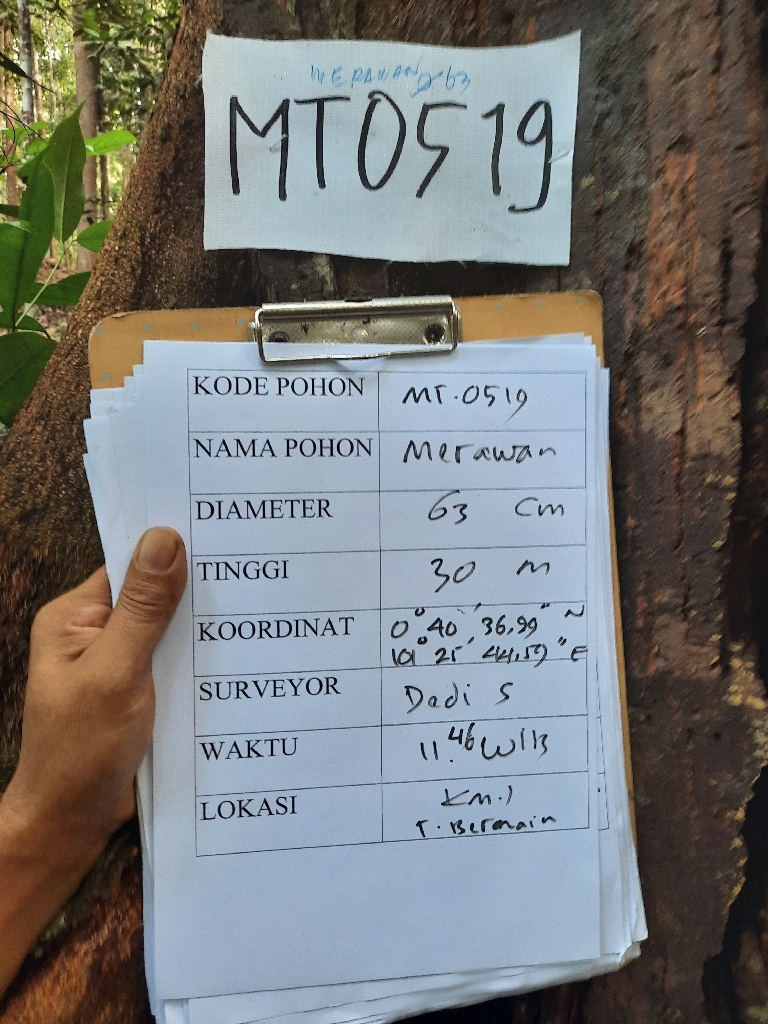 MERAWAN Ø 63
MT0519
KODE POHON MT.0519
NAMA POHON Merawan
DIAMETER 63 Cm
TINGGI 30 m
KOORDINAT 0° 40' 36,99" N
101° 25' 44,59" E
SURVEYOR Dadi S
WAKTU 11.46 WIB
LOKASI Km.1
T. Bermain